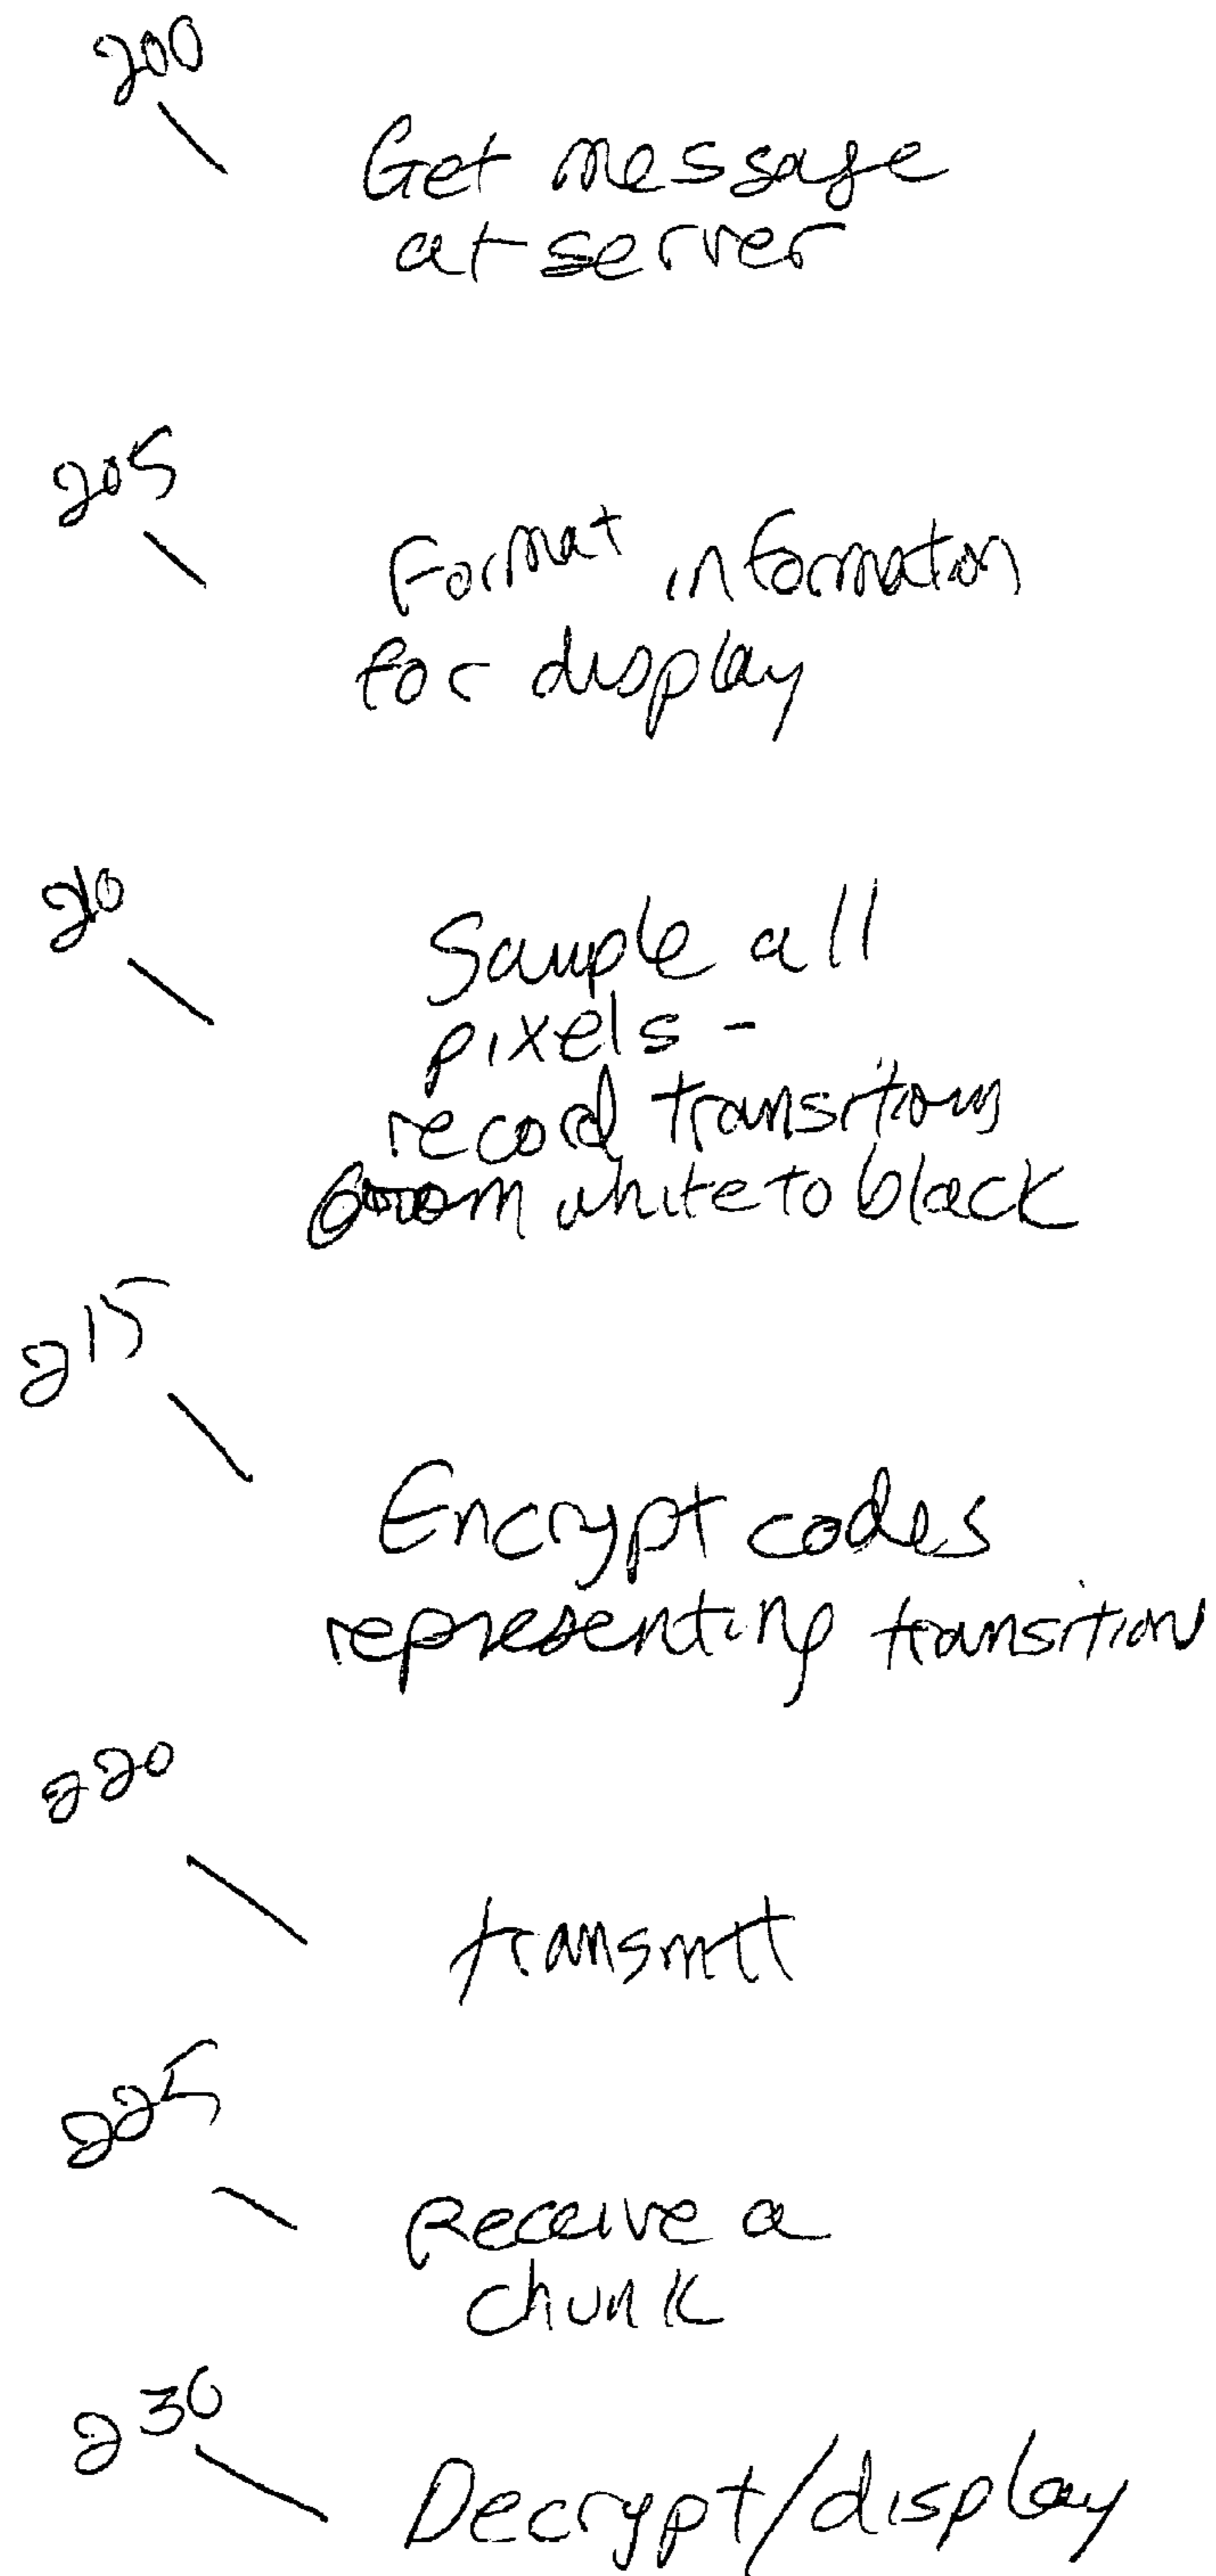 200
Get message
at server
205
Format information
for display
210
Sample all
pixels -
record transitions
from white to black
215
Encrypt codes
representing transitions
220
transmit
225
Receive a
chunk
230
Decrypt/display